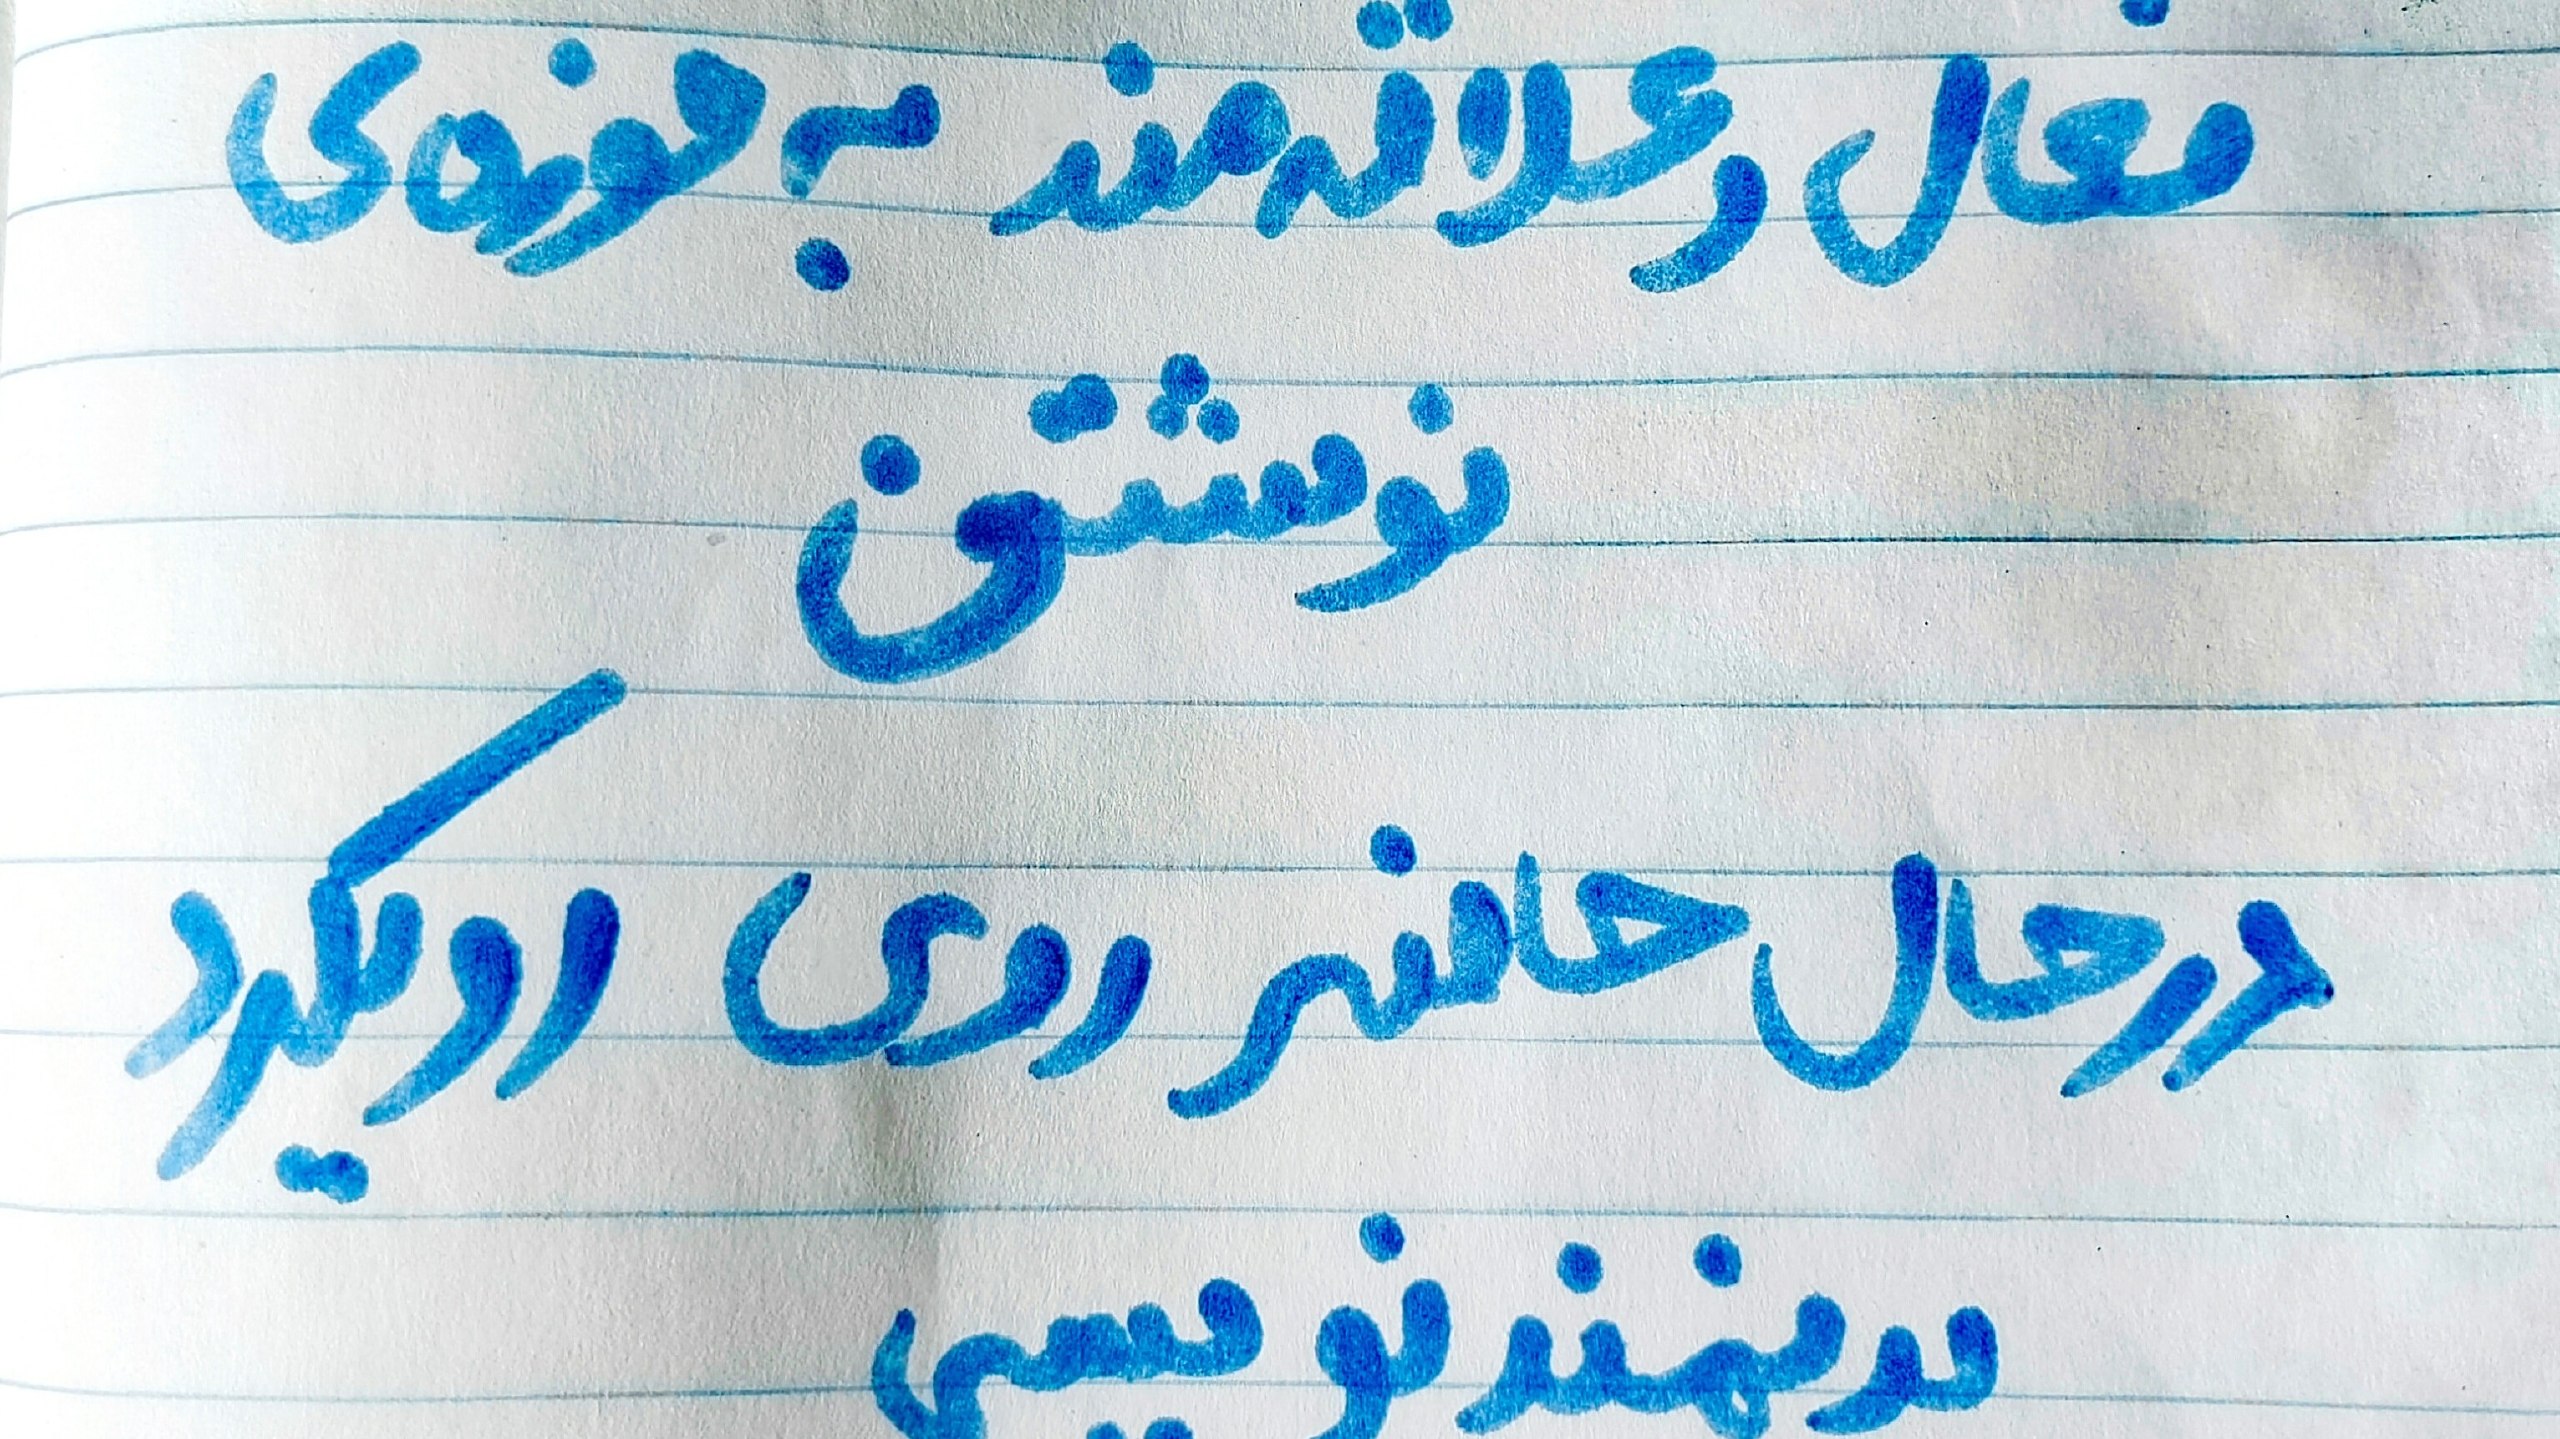 فعال و علاقه‌مند به حوزه‌ی
نوشتن
در حال حاضر روی رویکرد
نویسی